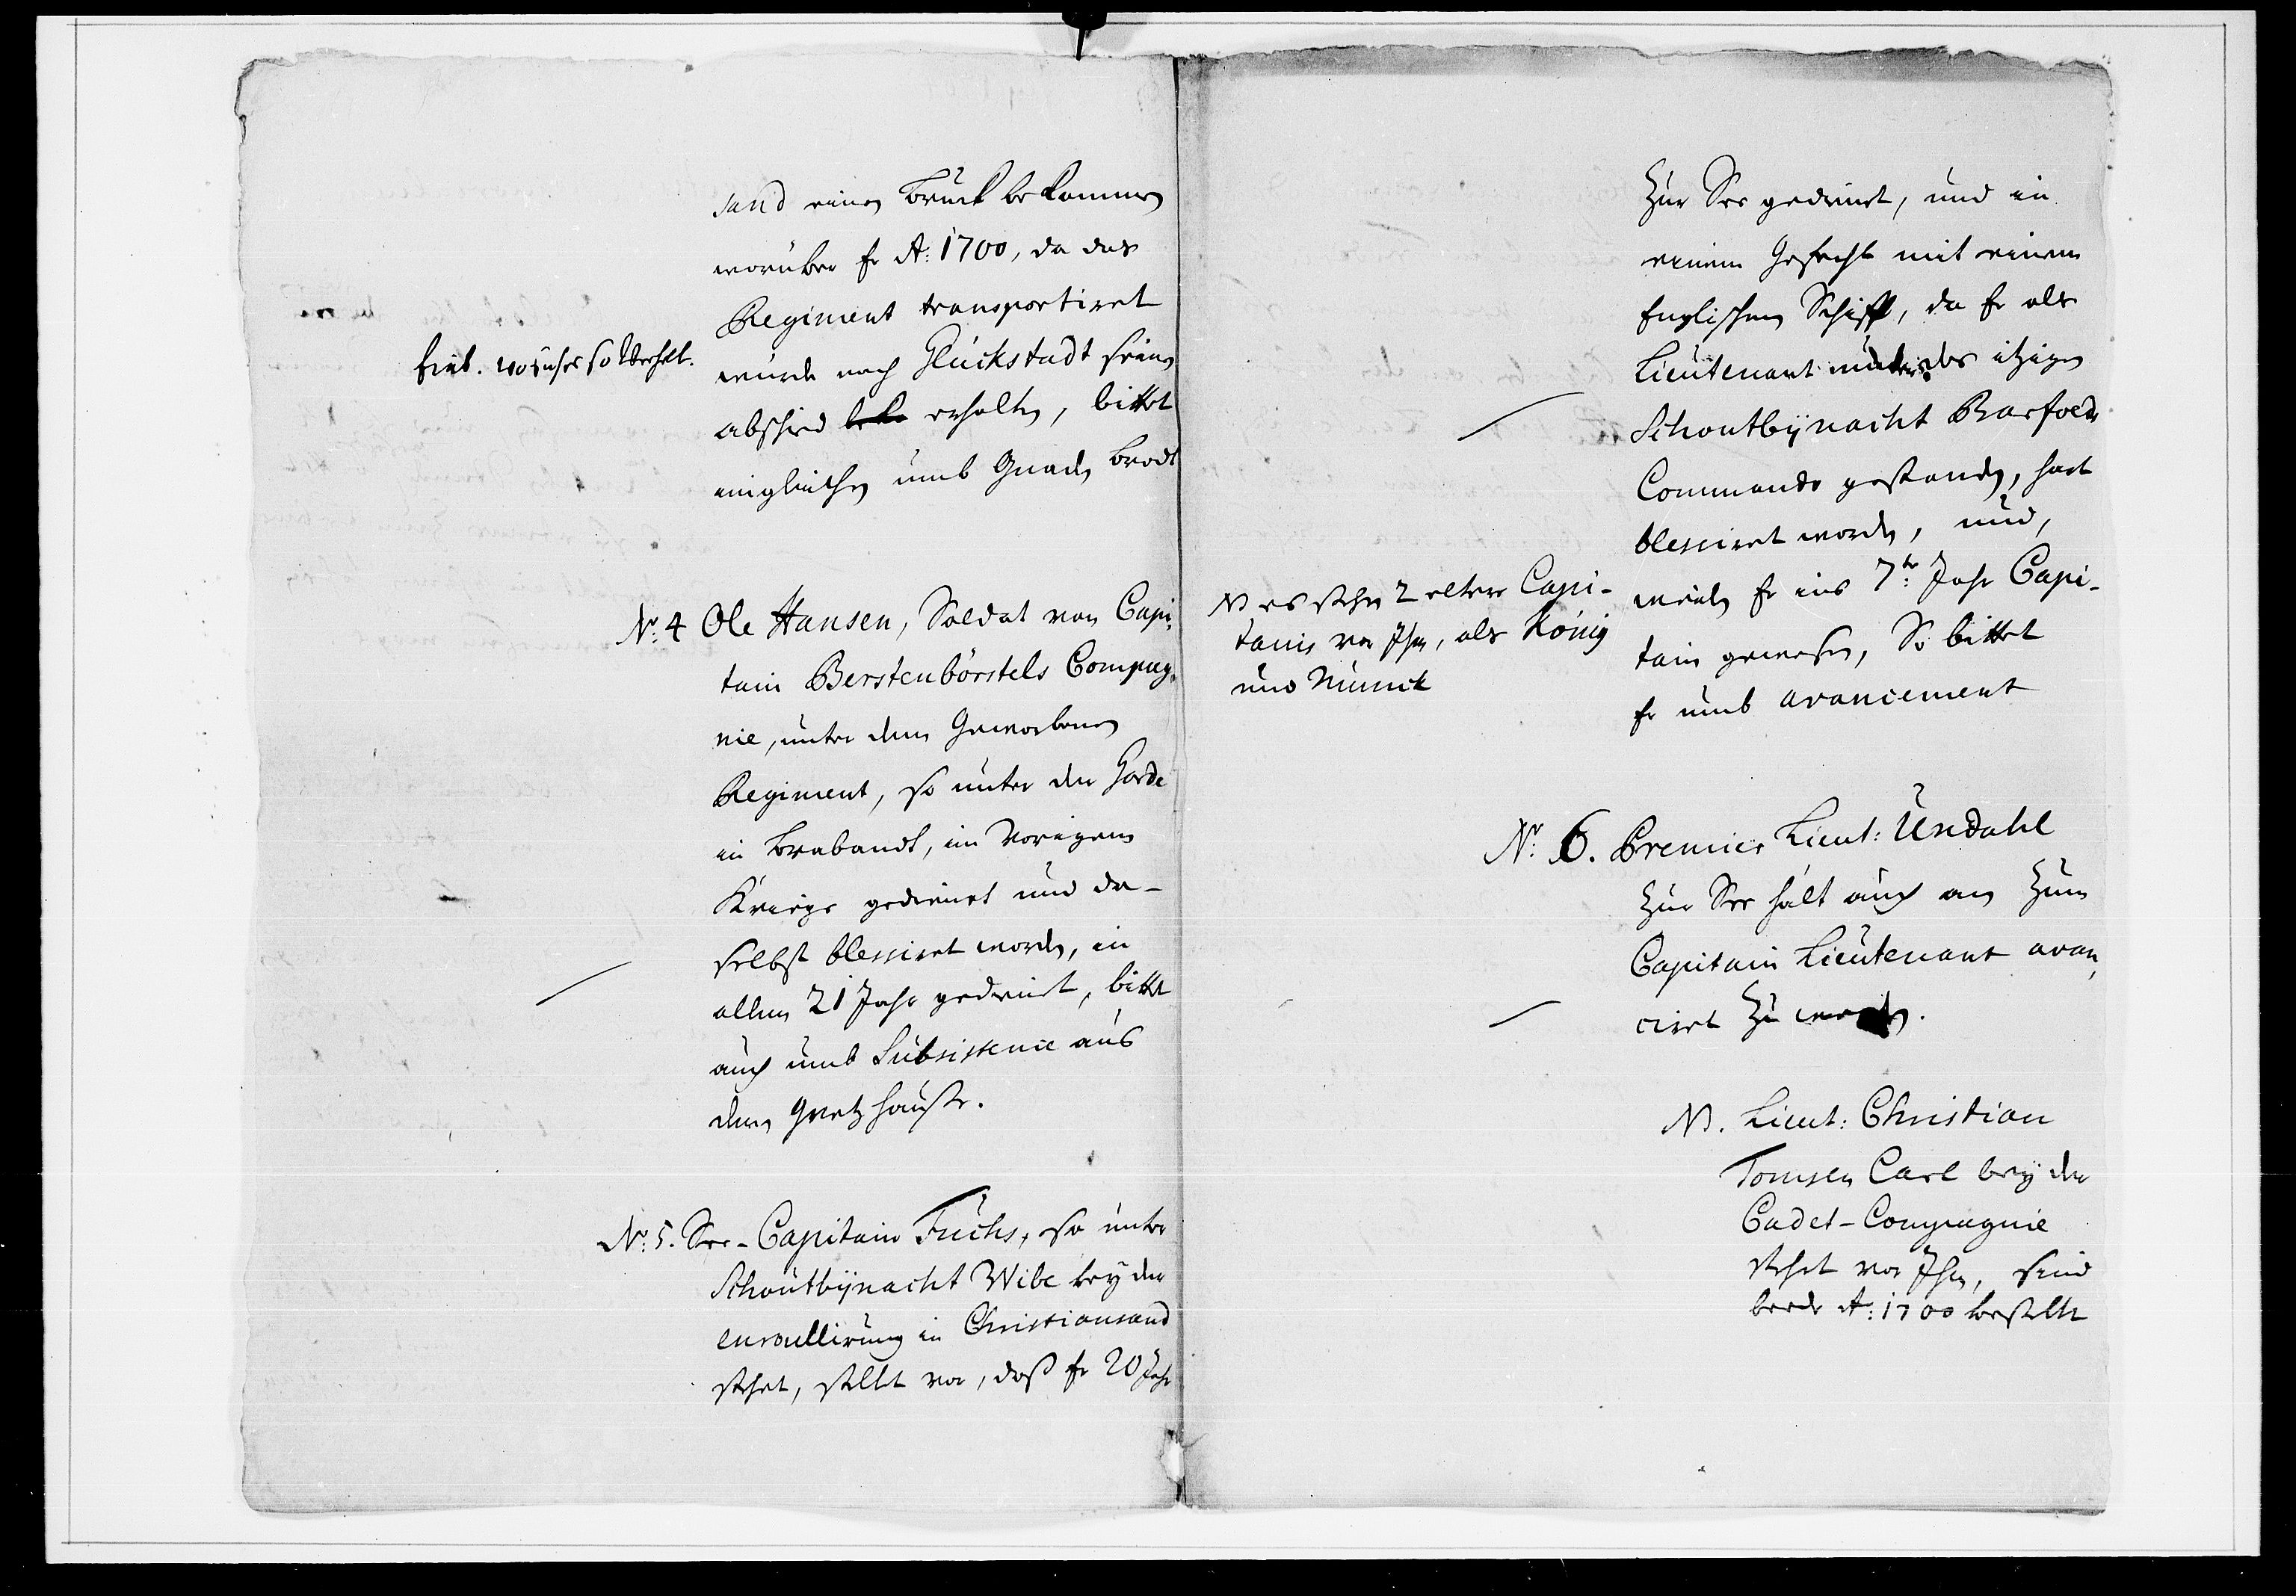 sand einen Bruck bekommen
worüber Er Ao: 1700, da das
Regiment transportiret
wurde nach Glückstadt seinen
abschied erhalten, bittet
eingleichen umb Gnaden brodt
No: 4 Ole Hansen, Soldat von Capi-
tain Berstenbörstels Compag-
nie, unter dem Geworbenen
Regiment, so unter der Garde
in Brabandt, im Vorigem
Kriege gedienet und da-
selbst blessiret worden, in
allem 21 Jahr gedienet, bittet
auch umb Subsistence aus
dem Gvethhauße.
No: 5. See-Capitain Fuchs, so unter
Schoutbijnacht Wibe bey der
enroullirung in Christiansand
stehet, stellet vor, daß Er 20 Jahr
zur See gedienet, und in
einem Gefecht mit einem
Englischen Schiff, da Er als
Lieutenant unter des itzigen
Schoutbijnacht Barfoeds
Commando gestanden, hart
blessiret worden, und,
weilen Er ins 7te Jahr Capi-
tain gewesen, So bittet
Er umb avancement
NB es stehen 2 eltere Capi-
tains vor Ihm, als König
und Munck
No: 6. Premier Lieut: Undahl
zur See hält auch an zum
Capitain Lieutenant avan-
ciret zu werden.
NB. Lieut: Christian
Tomsen Carl bey der
Cadet-Compagnie
stehet vor Ihm, sind
beede Ao: 1700 bestellt